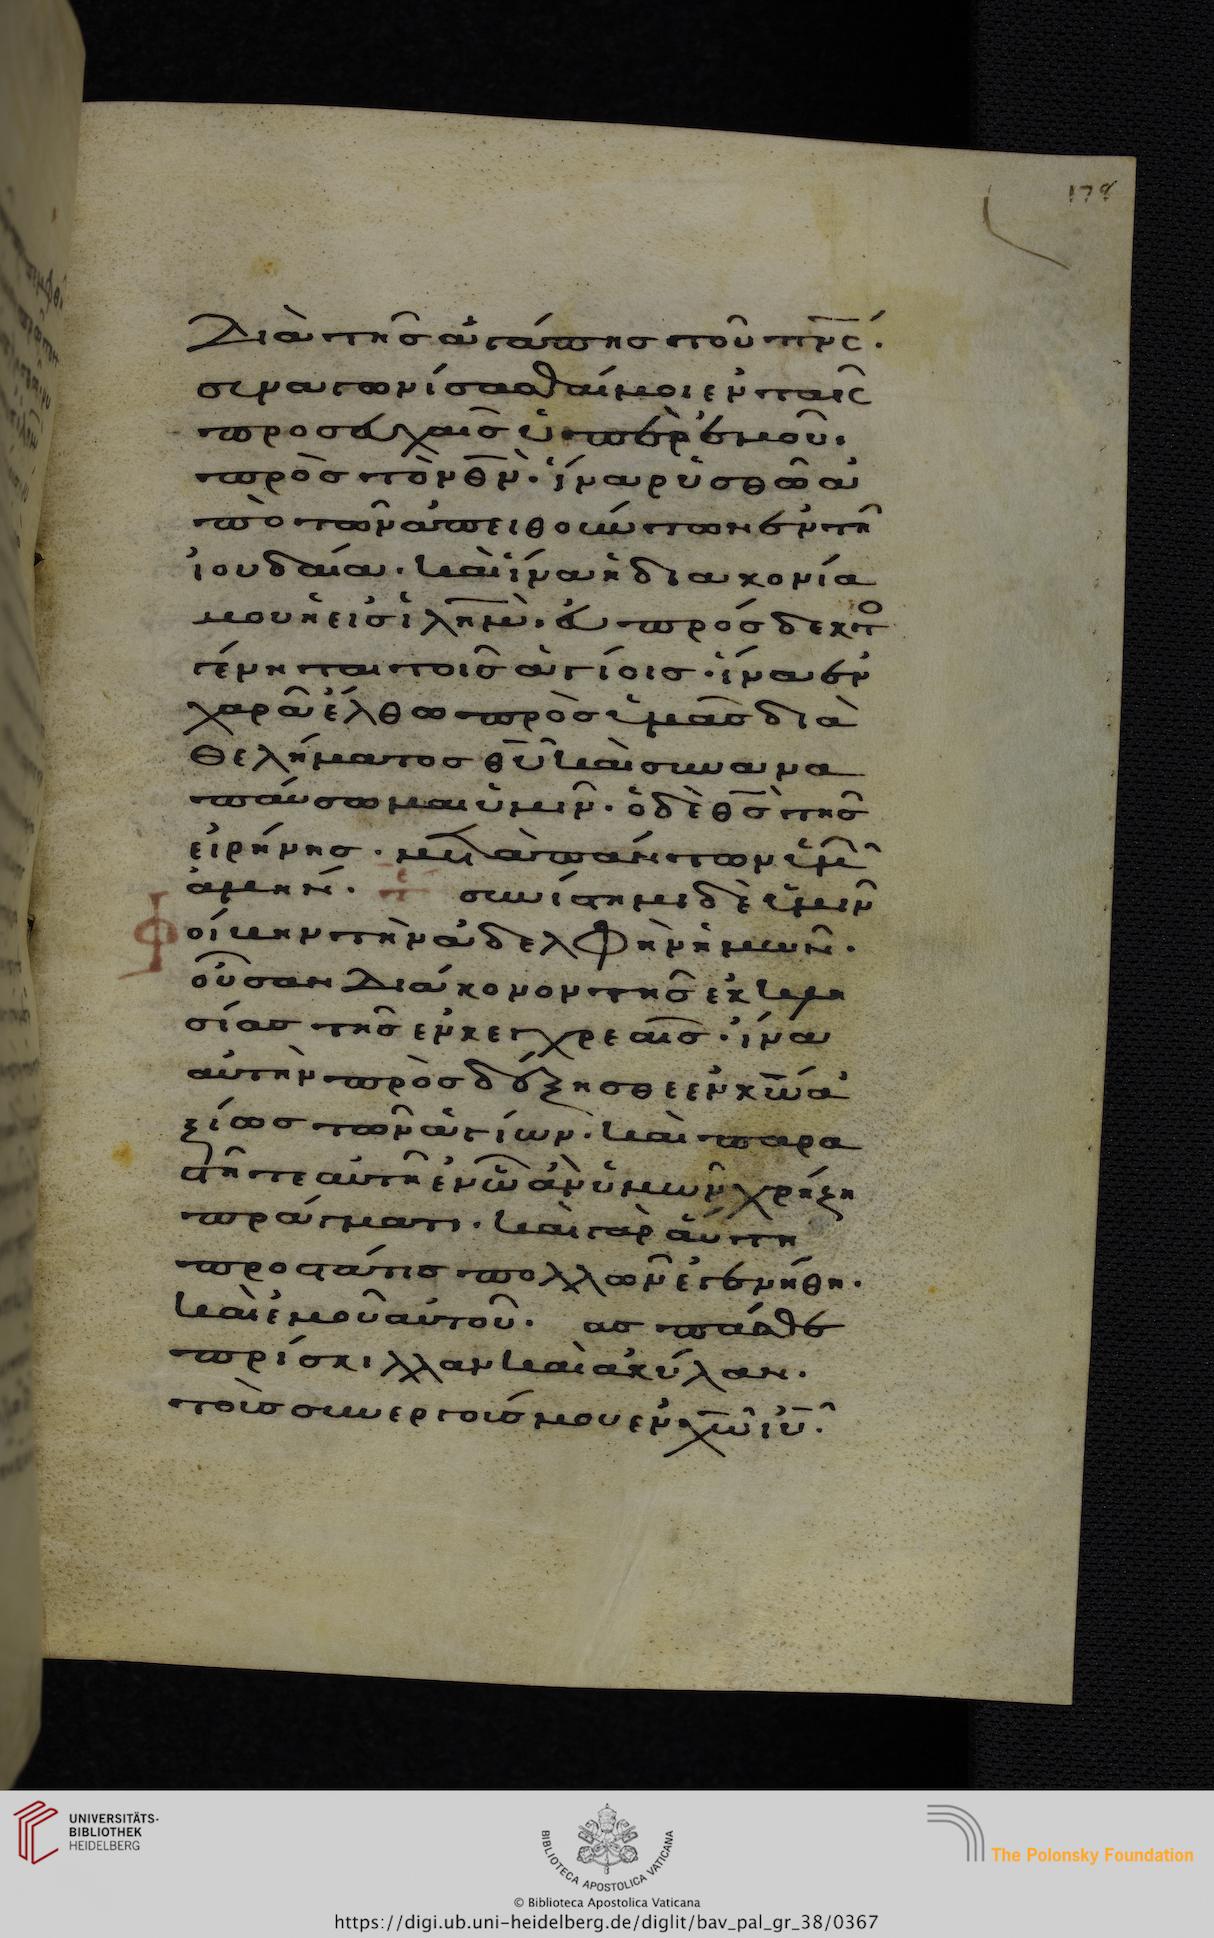 178
Διὰ τῆς ἀγάπης τοῦ πν̅ς.
συναγωνίσασθαί μοι ἐν ταῖς
προσευχαῖς ὑπὲρ ἐμοῦ.
πρὸς τὸν θν̅. ἵνα ῥυσθῶ ἀ
πὸ τῶν ἀπειθούντων ἐν τῆ
ἰουδαία. καὶ ἵνα ἡ διακονία
μου ἡ εἰς ἱλημ̅. εὐπρόσδεκτο
γένηται τοῖς ἁγίοις. ἵνα ἐν
χαρᾶ ἔλθω πρὸς ὑμᾶς διὰ
Θελήματος θυ̅ καὶ συνανα
παύσωμαι ὑμῖν. ὁ δὲ θς̅ τῆς
εἰρήνης. μετὰ πάντων ὑμῶ
ἀμήν. συνίστημι δὲ ὑμῖν
Φοίβην τὴν ἀδελφὴν ἡμῶν.
οὖσαν Διάκονον τῆς ἐκκλη
σίας τῆς ἐν κεγχρεαῖς. ἵνα
αὐτὴν προσδέξησθε ἐν κω̅ ἀ
ξίως τῶν ἁγίων. καὶ παρα
στῆτε αὐτῆ ἐν ὧ ἂν ὑμῶν χρήζη
πράγματι. καὶ γὰρ αὕτη
προστάτις πολλῶν ἐγενήθη.
καὶ ἐμοῦ αὐτοῦ. ασπάσασθε
πρίσκιλλαν καὶ ἀκύλαν.
τοὺς συνεργούς μου ἐν χω̅ ιυ̅.
UNIVERSITÄTS-
BIBLIOTHEK
HEIDELBERG
BIBLIOTECA APOSTOLICA VATICANA
© Biblioteca Apostolica Vaticana
The Polonsky Foundation
https://digi.ub.uni-heidelberg.de/diglit/bav_pal_gr_38/0367